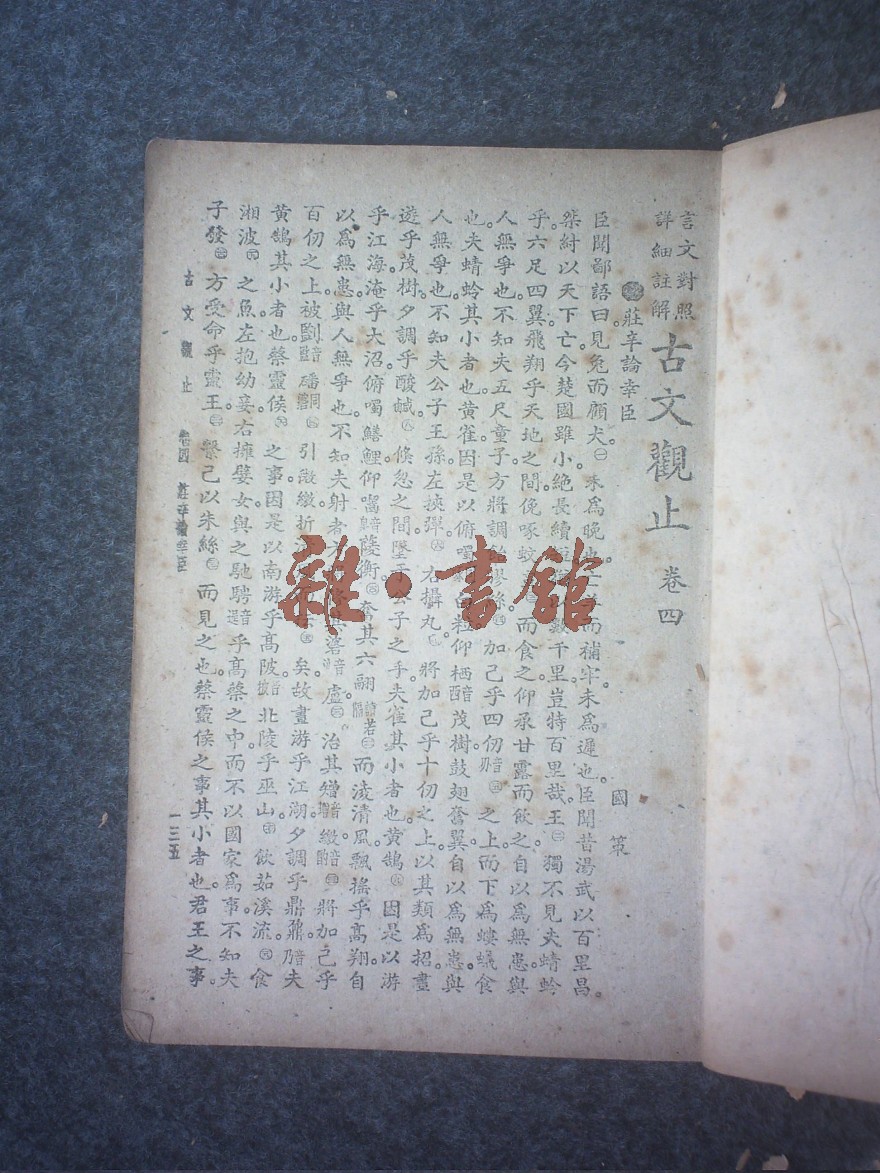 言文對照
詳細註解
古文觀止 卷四
莊辛論幸臣
國策
臣聞鄙語曰。見兔而顧犬。㊀未爲晚也。亡羊而補牢。未爲遲也。臣聞昔湯武以百里昌。
桀紂以天下亡。今楚國雖小。絕長續短。數千里。豈特百里哉。王㊂獨不見夫蜻蛉
乎。六足四翼。飛翔乎天地之間。俛啄蚊而食之。仰承甘露而飲之。自以爲無患。與
人無爭也。不知夫五尺童子。方將調膠絲。加己乎四仞之上。而下爲螻蟻食
也。夫蜻蛉其小者也。黃雀因是以俯噣白粒。仰栖茂樹。鼓翅奮翼。自以爲無患。與
人無爭也。不知夫公子王孫。左挾彈。右攝丸。將加己乎十仞之上。以其類爲招。晝
遊乎茂樹。夕調乎酸鹹。倏忽之間。墜于公子之手。夫雀其小者也。黃鵠因是以游
乎江海。淹乎大沼。俯噣鱔鯉。仰嚙䔖衡。奮其六翮。而淩清風。飄搖乎高翔。自
以爲無患。與人無爭也。不知夫射者。盧。治其矰繳。將加己乎
百仞之上。被劉磻。引微繳。折矣。故晝游乎江湖。夕調乎鼎鼐。夫
黃鵠其小者也。蔡靈侯之事。因是以南游乎高陂。北陵乎巫山。飲茹溪流。食
湘波之魚。左抱幼妾。右擁嬖女。與之馳騁乎高蔡之中。而不以國家爲事。不知夫
子發方受命乎靈王。繫己以朱絲。而見之也。蔡靈侯之事。其小者也。君王之事。
古文觀止 卷四 莊辛論幸臣 一三五
雜·書館